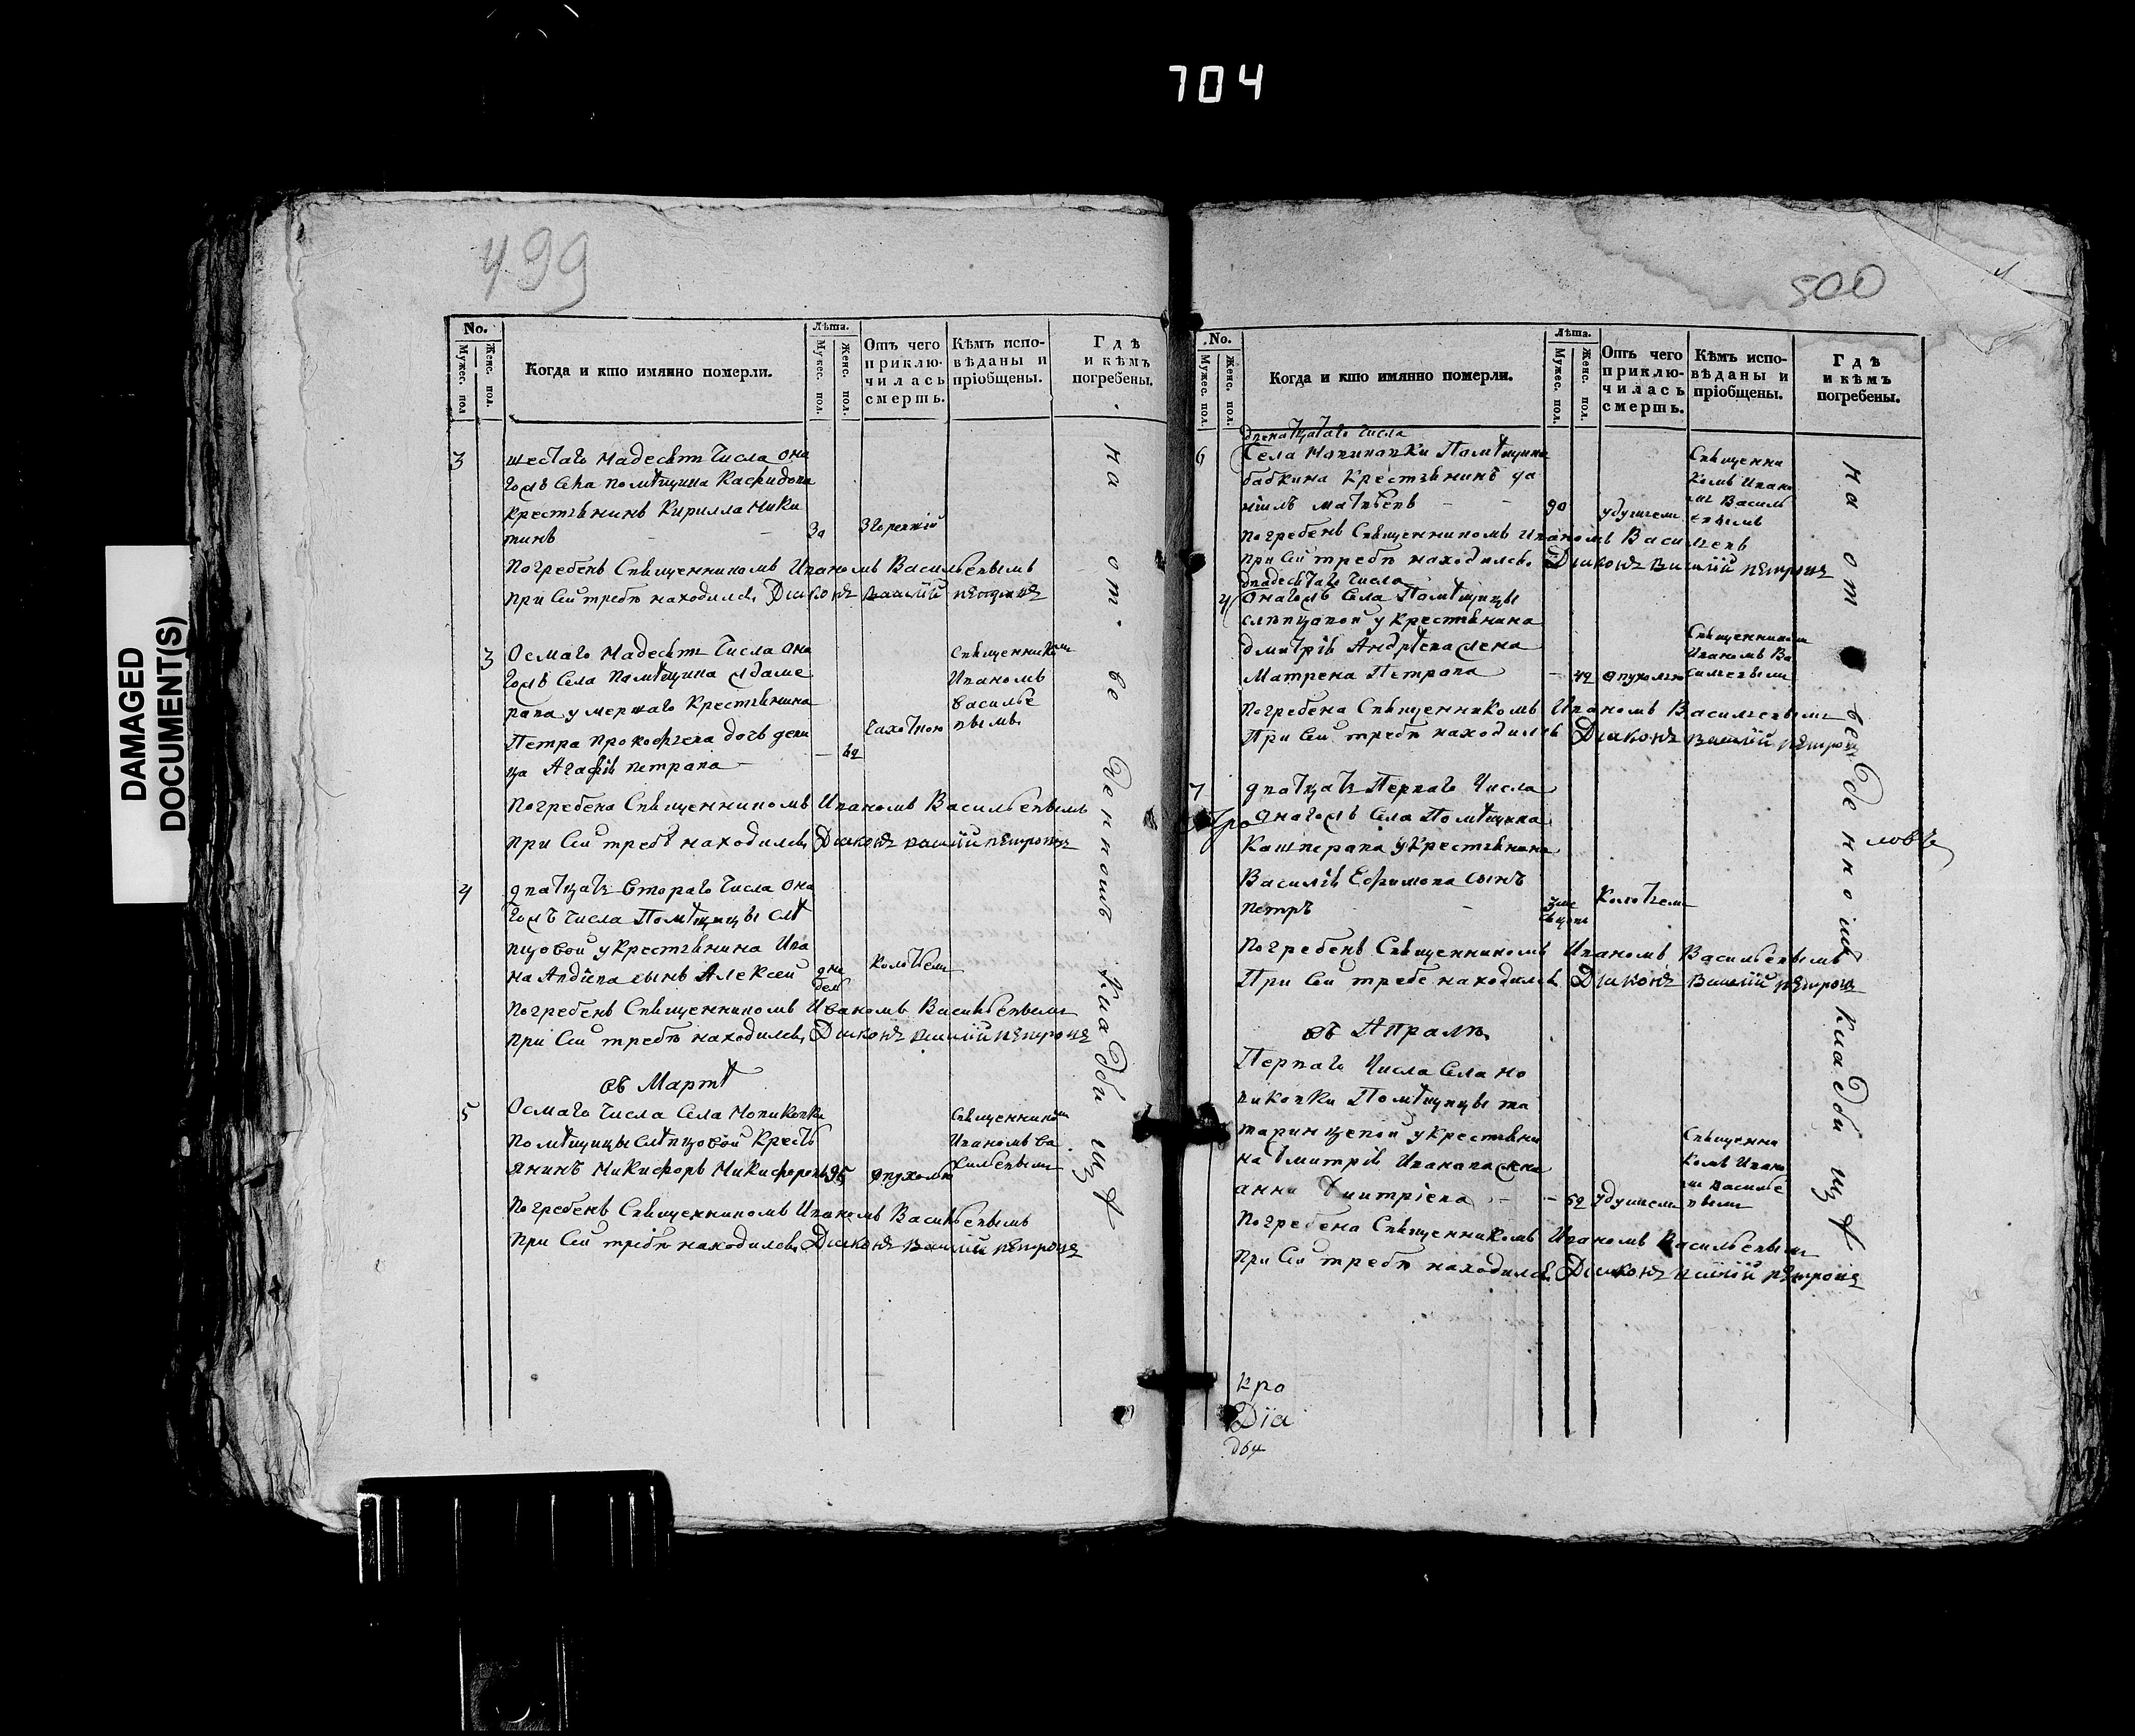 704
DAMAGED
DOCUMENT(S)
499
No.
Мужес. пол
Женс. пол.
Когда и кто имянно померли.
Лѣта.
Мужес. пол.
Женс. пол.
Отъ чего приклю-чилась смерть.
Кѣмъ испо-вѣданы и пріобщены.
Гдѣ и кѣмъ погребены.
3
шестаго надесять числа она
гожъ села помѣщика
крестьянинъ Кирилла Ники
тинъ
30
згорячки
Погребенъ Священникомъ Иваномъ Васильевымъ
при сей требѣ находился Діаконъ Василій Петровъ
3
Осмаго надесять числа она
гожъ села помѣщика
умершаго крестьянина
Петра Прокофьева дочь деви
ца Агафія Петрова
чахоткою
Священникомъ
Иваномъ
Василье
вымъ
Погребена Священникомъ Иваномъ Васильевымъ
при сей требѣ находился Діаконъ Василій Петровъ
4
дватцать втораго числа она
гожъ числа Помѣщицы Слѣ
пцовой у крестьянина Ива
на сынъ Алексей
Погребенъ Священникомъ Иваномъ Васильевымъ
при сей требѣ находился Діаконъ Василій Петровъ
въ Мартѣ
5
Осмаго числа села Новиковки
помѣщицы Слѣпцовой кресть
янинъ Никифоръ Никифоровъ
95
опухолью
Священникомъ
Иваномъ Ва
сильевымъ
Погребенъ Священникомъ Иваномъ Васильевымъ
при сей требѣ находился Діаконъ Василій Петровъ
на от. ве денномъ кладби щѣ
500
No.
Мужес. пол.
Женс. пол.
Когда и кто имянно померли.
Лѣта.
Мужес. пол.
Женс. пол.
Отъ чего приклю-чилась смерть.
Кѣмъ испо-вѣданы и пріобщены.
Гдѣ и кѣмъ погребены.
6
двенатцатаго числа
Села Новиковки Помѣщика
Бабкина крестьянинъ Да
ніилъ Матвѣевъ
90
удушьемъ
Священни
комъ Ивано
мъ Василь
евымъ
Погребенъ Священникомъ Иваномъ Васильевъ
при сей требѣ находился Діаконъ Василій Петровъ
4
онагожъ села Помѣщицы
Слѣпцовой у крестьянина
Дмитрія Андрѣева жена
Матрена Петрова
опухолью
Священникомъ
Иваномъ Ва
сильевымъ
Погребена Священникомъ Иваномъ Васильевымъ
При сей требѣ находился Діаконъ Василій Петровъ
7
дватцать перваго числа
онагожъ села Помѣщика
у крестьянина
Василія Ефимова сынъ
Петръ
Погребенъ Священникомъ Иваномъ Васильевымъ
При сей требе находился Діаконъ Василій Петровъ
въ Апрѣлѣ
Перваго числа села Но
виковки Помѣщицы Та
таринцевой у крестьяни
на Дмитрія Иванова жена
Анна Дмитріева
удушьемъ
Священни
комъ Ивано
мъ Василье
вымъ
Погребена Священникомъ Иваномъ Васильевымъ
При сей требѣ находился Діаконъ Василій Петровъ
на от ве денномъ кладби щѣ
ловъ
кро
Діа